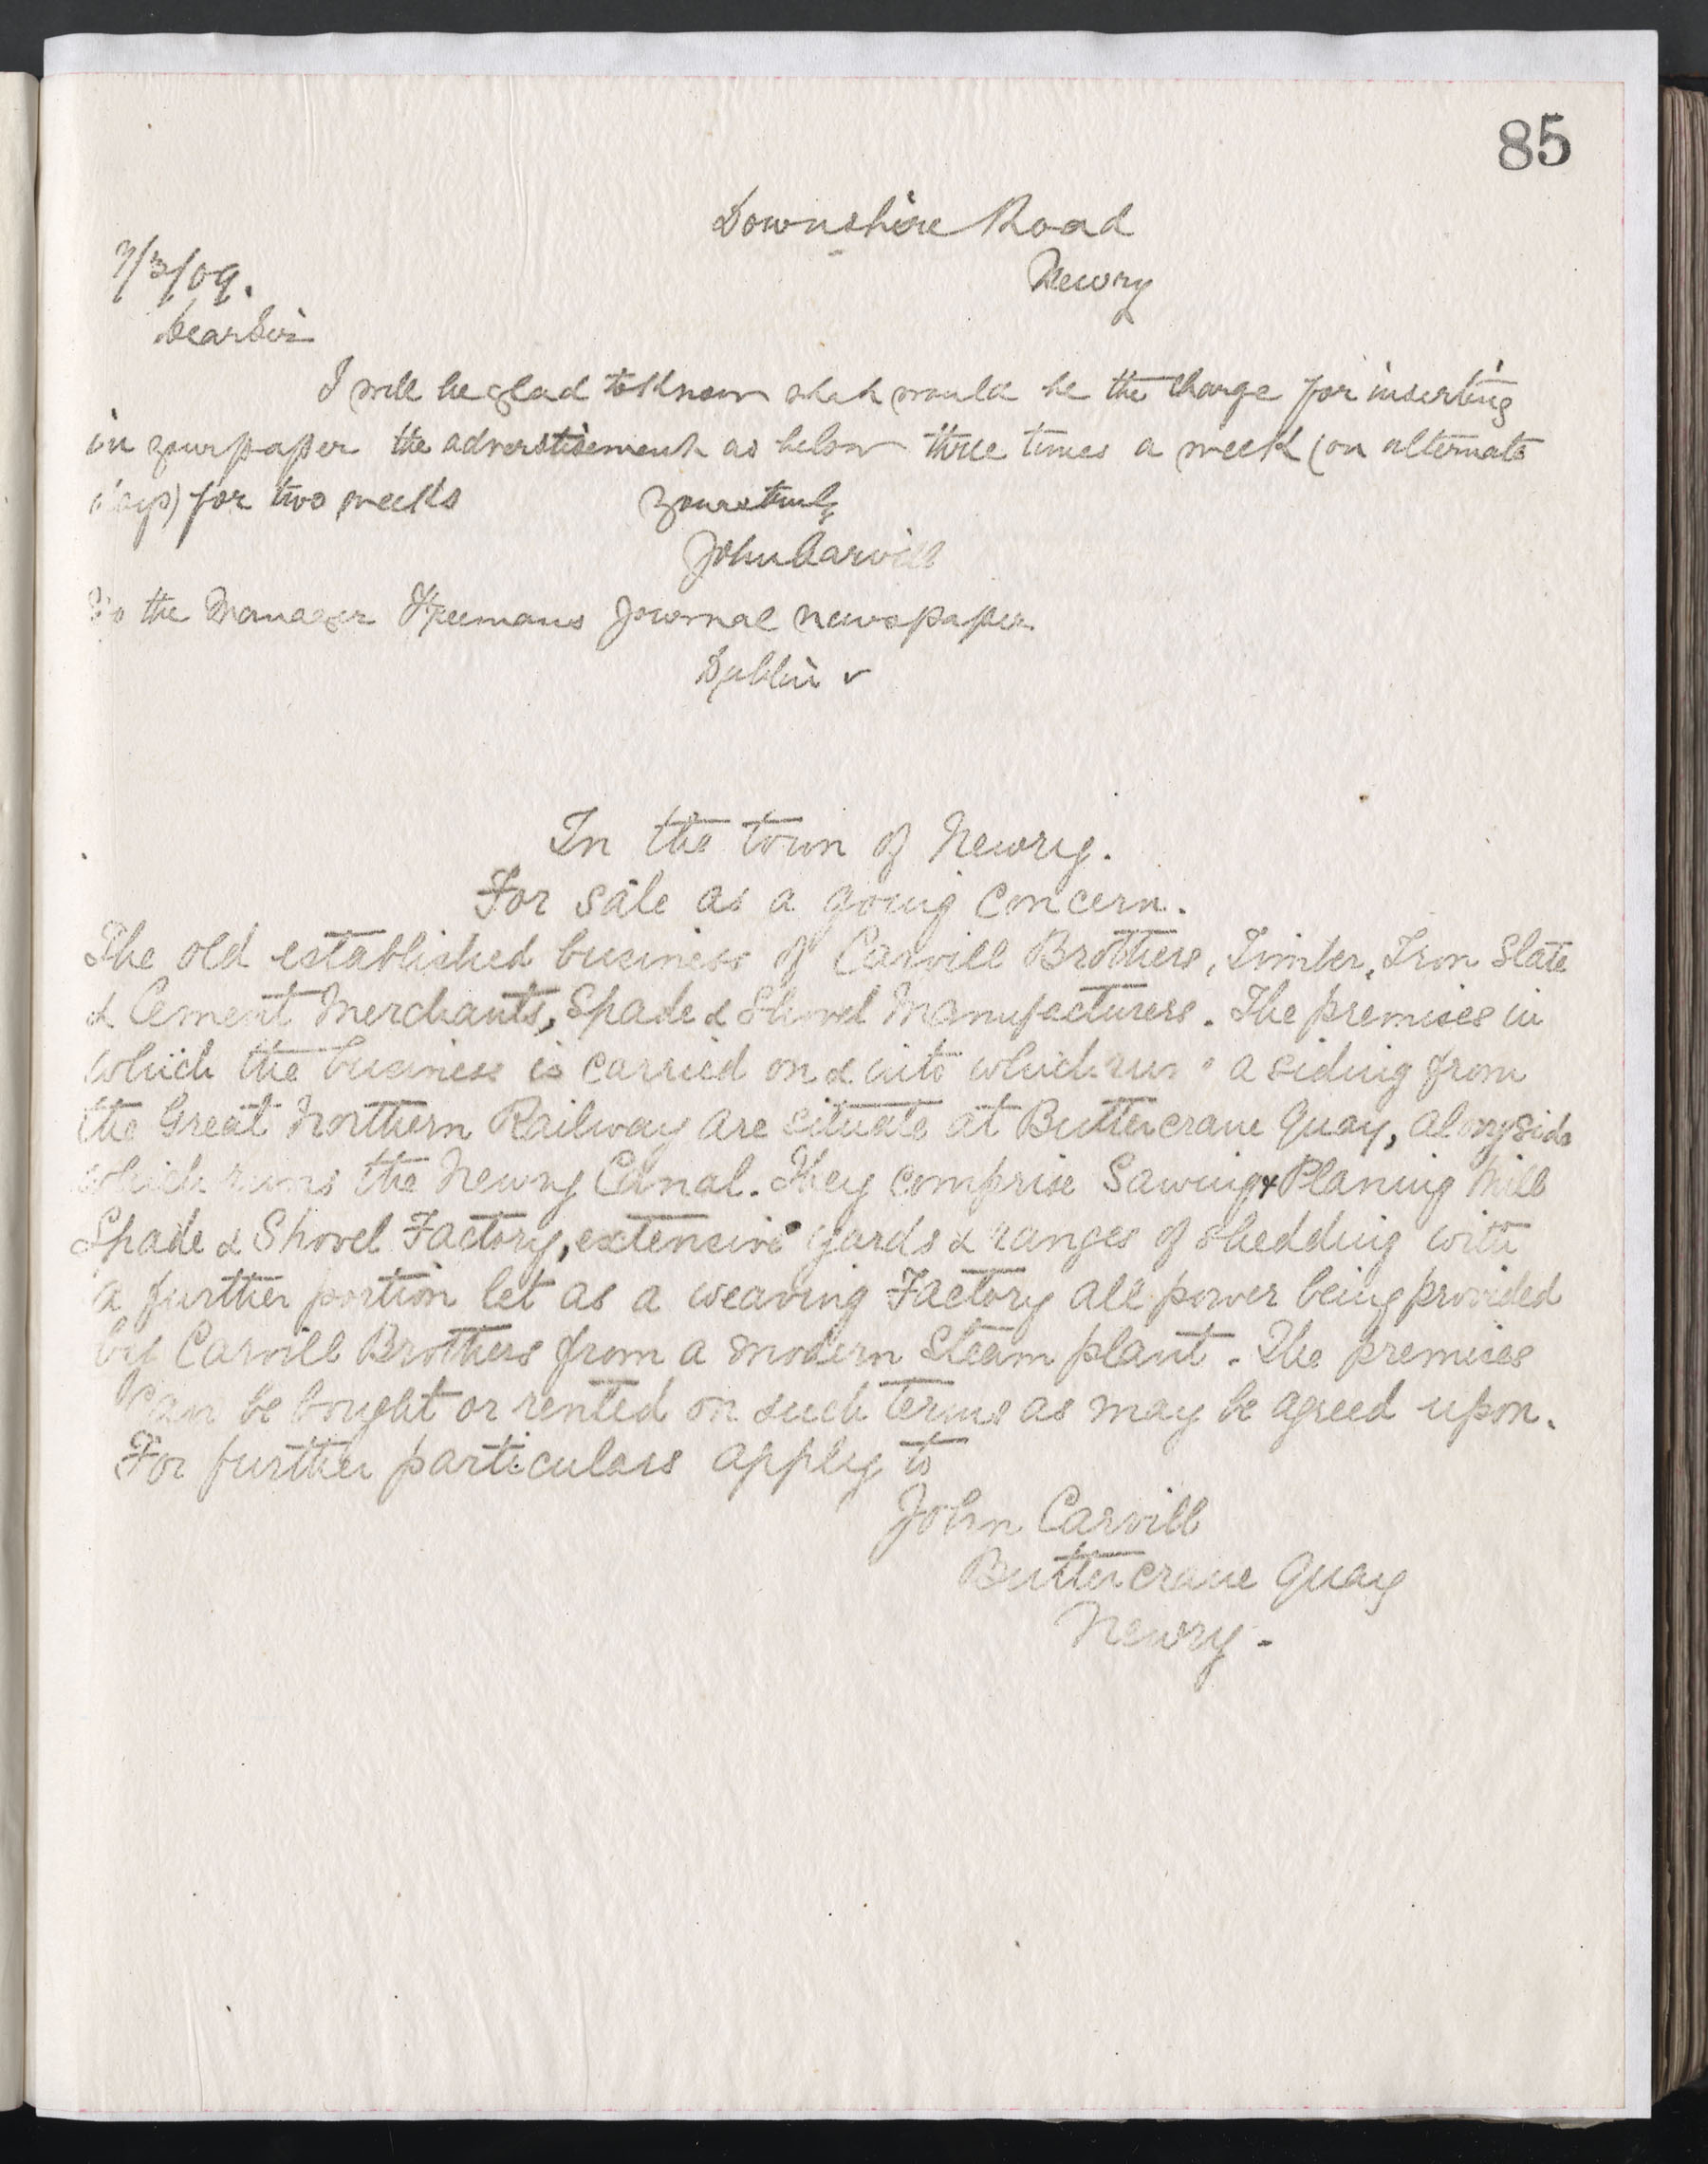 85
Downshire Road
7/3/09.
Newry
Dear Sir
I will be glad to know what would be the charge for inserting
in your paper the adverstisement as below three times a week (on alternate
days) for two weeks
Yours truly
John Carvill
To the Manager Freemans Journal newspaper
Dublin
In the town of Newry.
For sale as a going concern.
The old established business of Carvill Brothers, Timber, Iron Slate
& Cement Merchants, Spade & Shovel Manufacturers. The premises in
which the business is carried on & into which runs a siding from
the Great Northern Railway are situate at Buttercrane Quay, alongside
which runs the Newry Canal. They comprise Sawing & Planing Mill
Spade & Shovel Factory, extensive yards & ranges of shedding with
a further portion let as a weaving Factory all power being provided
by Carvill Brothers from a modern Steam plant. The premises
can be bought or rented on such terms as may be agreed upon.
For further particulars apply to
John Carvill
Buttercrane Quay
Newry.